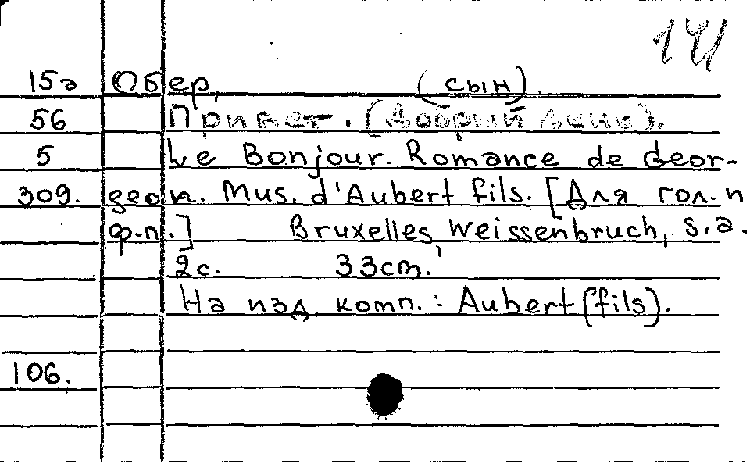 141
15а Обер, (сын).
56 Привет. (Добрый день).
5 Le Bonjour. Romance de deor-
309. geon. Mus. d'Aubert fils. [Для гол. и
ф.п.] Bruxelles, Weissenbruch, s.a.
2с. 33cm.
На изд. комп.: Aubert (fils).
106.